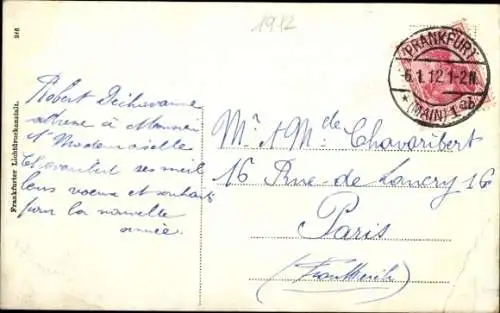 1912
248
Frankfurter Lichtdruckanstalt.
FRANKFURT
6.1.12.1-2N.
* (MAIN) 1
Robert Dechavanne
adresse à Monsieur
et Mademoiselle
Chavaribert ses meil
leurs voeux et souhaits
pour la nouvelle
année.
Mr & Mme de Chavaribert
16 Rue-de Lancry 16
Paris
(Frankreich)